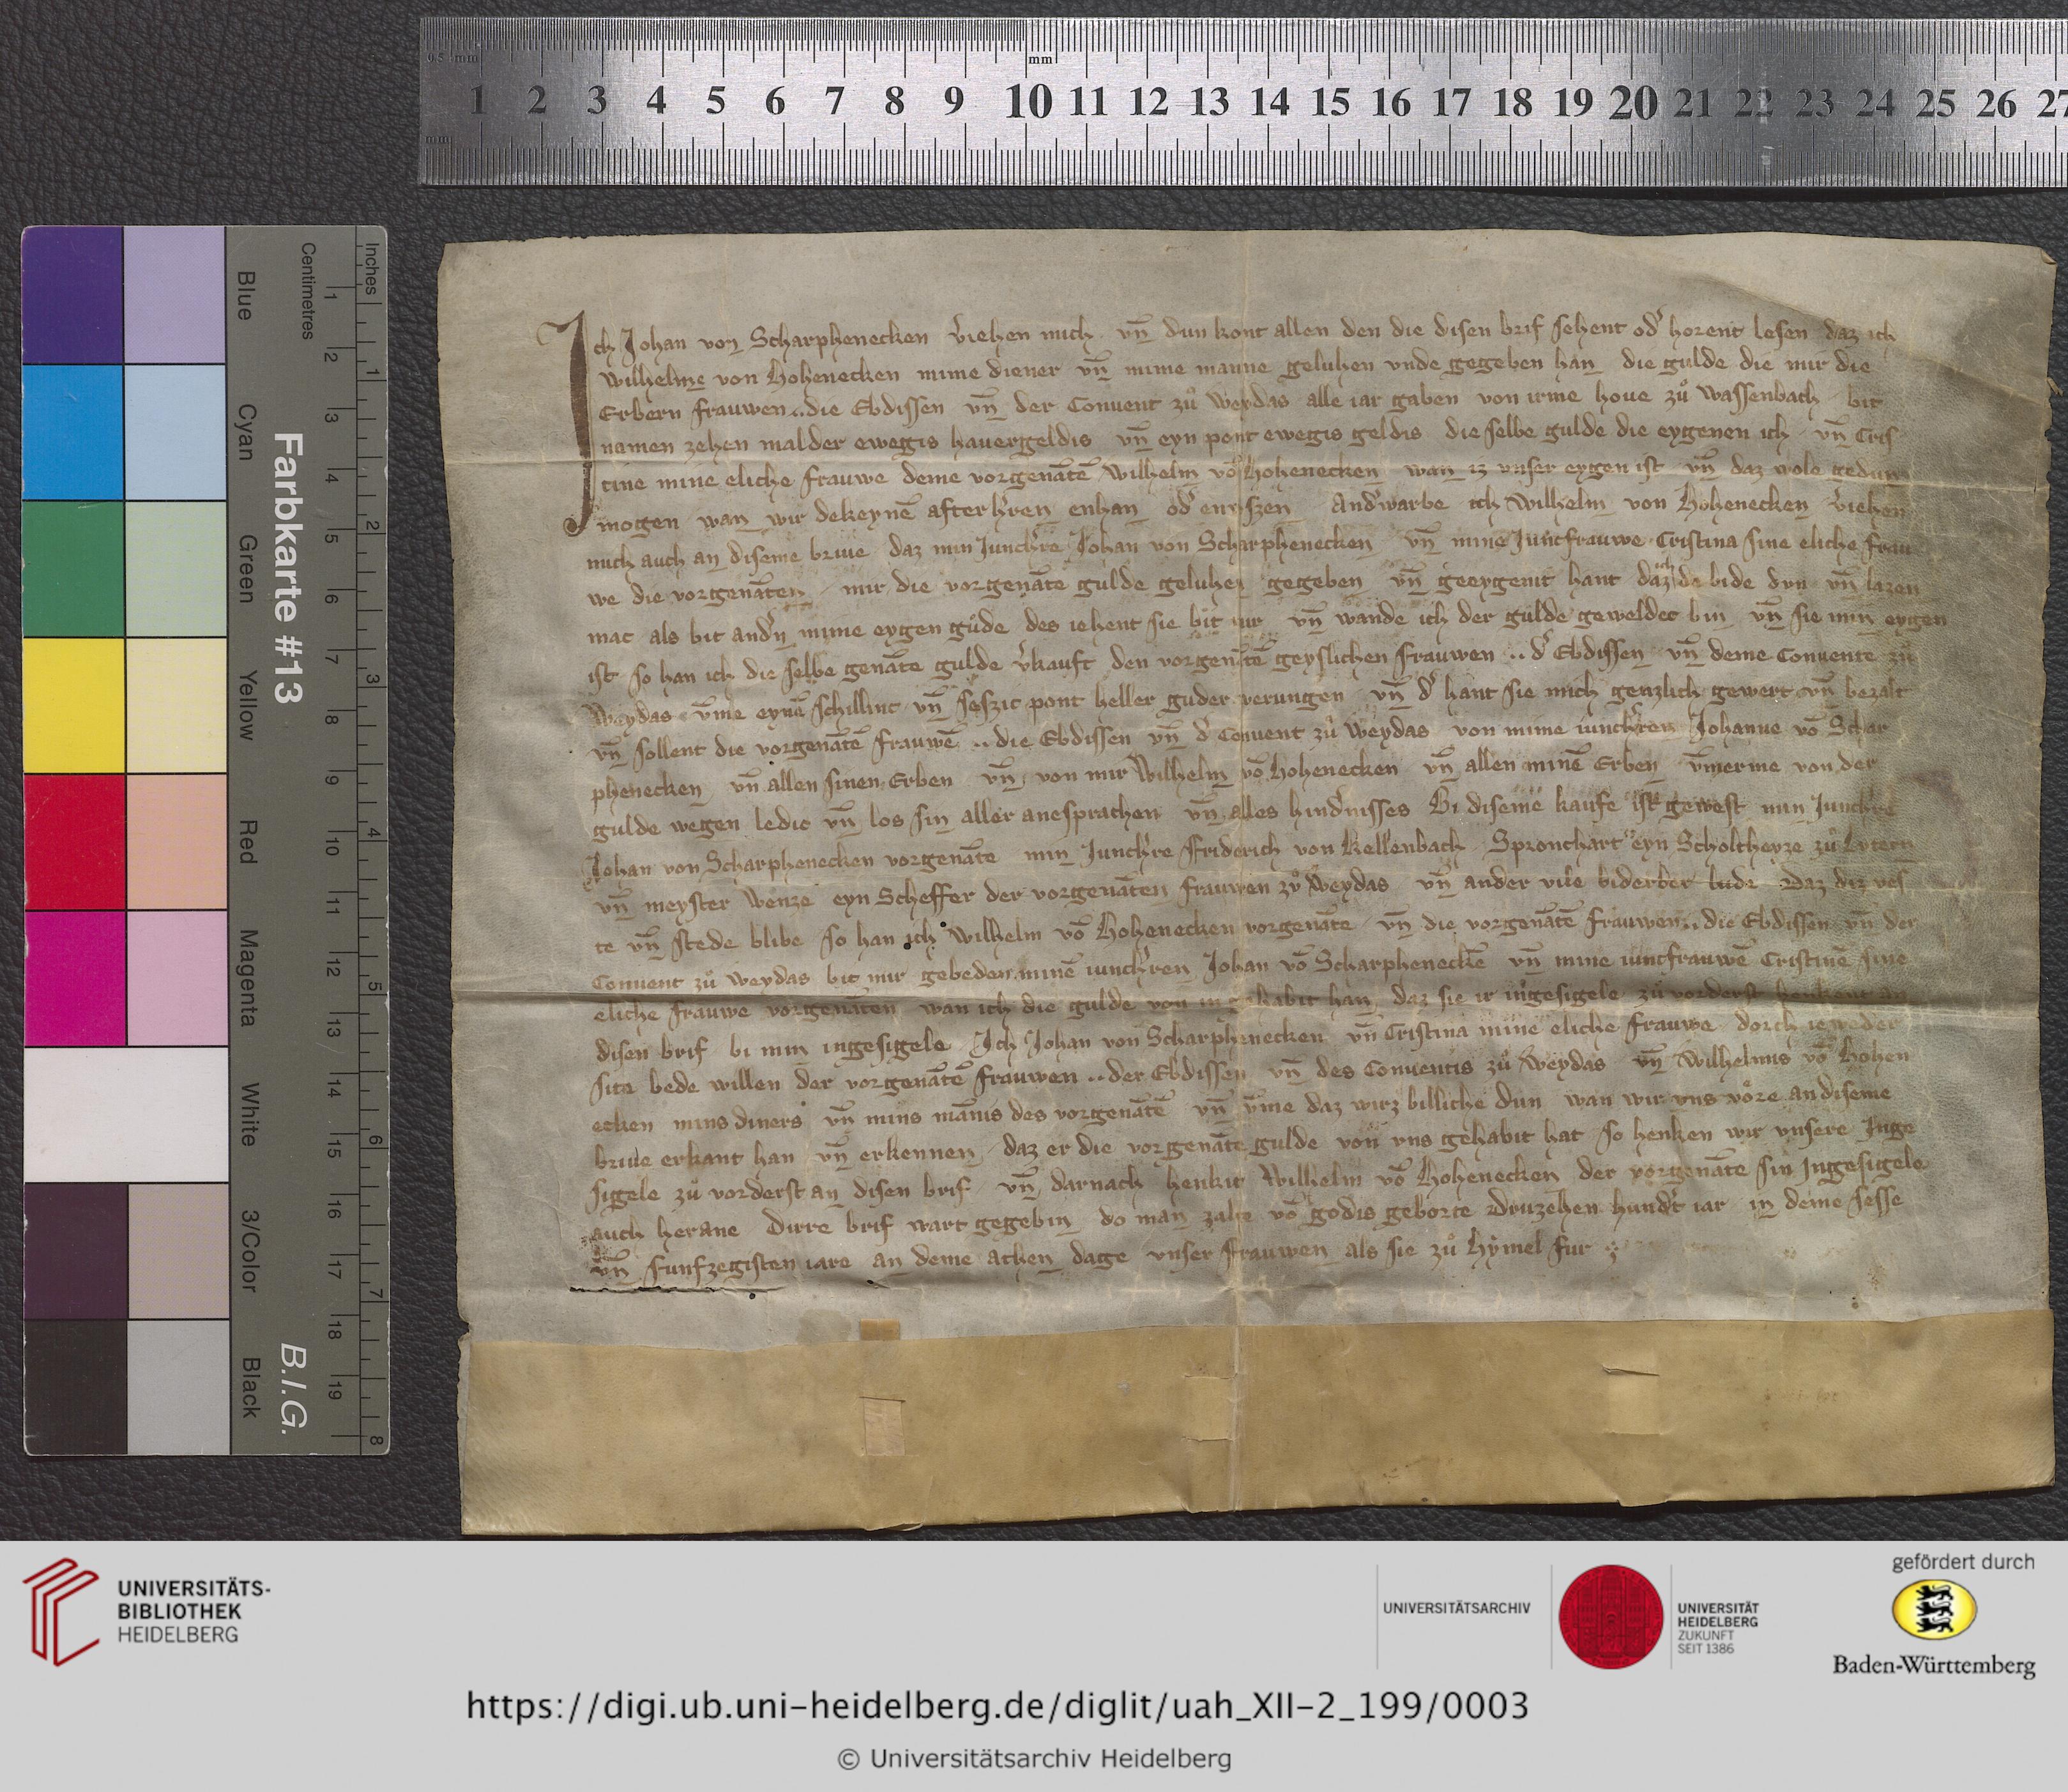 mm
1 2 3 4 5 6 7 8 9 10 11 12 13 14 15 16 17 18 19 20 21 22 23 24 25 26 27
Blue Cyan Green Yellow Red Magenta White 3/Color Black
Farbkarte #13 B.I.G.
Centimetres 1 2 3 4 5 6 7 8 9 10 11 12 13 14 15 16 17 18 19
Inches 1 2 3 4 5 6 7 8
Ich Johan von Scharphenecken v̾iehen mich vn̄ dun kont allen den die disen brif sehent od̾ horent lesen daz ich
Wilhelme von Hohenecken mime diener vn̄ mime manne geluhen vnde gegeben han die gulde die mir die
Erbern frauwen .. die Ebdissen vn̄ der Conuent zů Weydas alle iar gaben von irme houe zů Wassenbach bit
namen zehen malder ewegis hauergeldis vn̄ eyn pont ewegis geldis die selbe gulde die eygenen ich vn̄ Cris
tine mine eliche frauwe deme vorgenātē Wilhelm vō Hohenecken wan iz vnser eygen ist vn̄ daz wole gedun
mogen wan wir dekeynē afterh̾ren enhan od̾ And̾warbe ich Wilhelm von Hohenecken v̾iehen
mich auch an diseme briue daz min Junch̾re Johan von Scharphenecken vn̄ mine Juncfrauwe Cristina sine eliche frau
we die vorgenāten mir die vorgenāte gulde geluhen gegeben vn̄ geeygenit hant da bide dun vn̄ lazen
mac als bit and̾n mime eygen gůde des iehent sie bit mir vn̄ wande ich der gulde geweldec bin vn̄ sie min eygen
ist so han ich die selbe genāte gulde v̾kauft den vorgenātē geyslichen frauwen .. d̾ Ebdissen vn̄ deme Conuente zů
Weydas v̄me eynē schillinc vn̄ seszic pont heller guder werungen vn̄ d̾ hant sie mich genzlich gewert vn̄ bezalt
vn̄ sollent die vorgenātē frauwē .. die Ebdissen vn̄ d̾ Conuent zů Weydas von mime iunch̾ren Johanne vō Schar
phenecken vn̄ allen sinen Erben vn̄ von mir Wilhelm vō Hohenecken vn̄ allen minē Erben v̄merme von der
gulde wegen ledic vn̄ los sin aller anesprachen vn̄ alles hind̾nisses Bi diseme kaufe ist gewest min Junch̾re
Johan von Scharphenecken vorgenāte min Junch̾re Friderich von Kellenbach Spronchart eyn Scholtheyze zů Lutern
vn̄ meyster Wenze eyn Scheffer der vorgenāten frauwen zů Weydas vn̄ ander vile biderber lude Daz diz ves
te vn̄ stede blibe so han ich Wilhelm vō Hohenecken vorgenāte vn̄ die vorgenātē frauwen .. die Ebdissen vn̄ der
Conuent zů Weydas bit mir gebeden minē iunch̾ren Johan vō Scharpheneckē vn̄ mine iuncfrauwē Cristinē sine
eliche frauwe vorgenāten wan ich die gulde von in gehabit han daz sie ir ingesigele zů vorderst henkent an
disen brif bi min ingesigele Ich Johan von Scharphenecken vn̄ Cristina mine eliche frauwe dorch ieweder
site bede willen der vorgenātē frauwen .. der Ebdissen vn̄ des Conuentis zů Weydas vn̄ Wilhelmis vō Hohen
ecken mins diners vn̄ mins mānis des vorgenātē vn̄ v̄me daz wirz billiche dun wan wir vns vore an diseme
briue erkant han vn̄ erkennen daz er die vorgenāte gulde von vns gehabit hat so henken wir vnsere Inge
sigele zů vorderst an disen brif vn̄ darnach henkit Wilhelm vō Hohenecken der vorgenāte sin Ingesigele
auch herane Dirre brif wart gegebin do man zalte vō godis geborte Druzehen hund̾t iar in deme sesse
vn̄ funfzegisten iare an deme achen dage vnser frauwen als sie zů hymel fur
UNIVERSITÄTS-
BIBLIOTHEK
HEIDELBERG
UNIVERSITÄTSARCHIV
UNIVERSITÄT
HEIDELBERG
ZUKUNFT
SEIT 1386
gefördert durch
Baden-Württemberg
https://digi.ub.uni-heidelberg.de/diglit/uah_XII-2_199/0003
© Universitätsarchiv Heidelberg